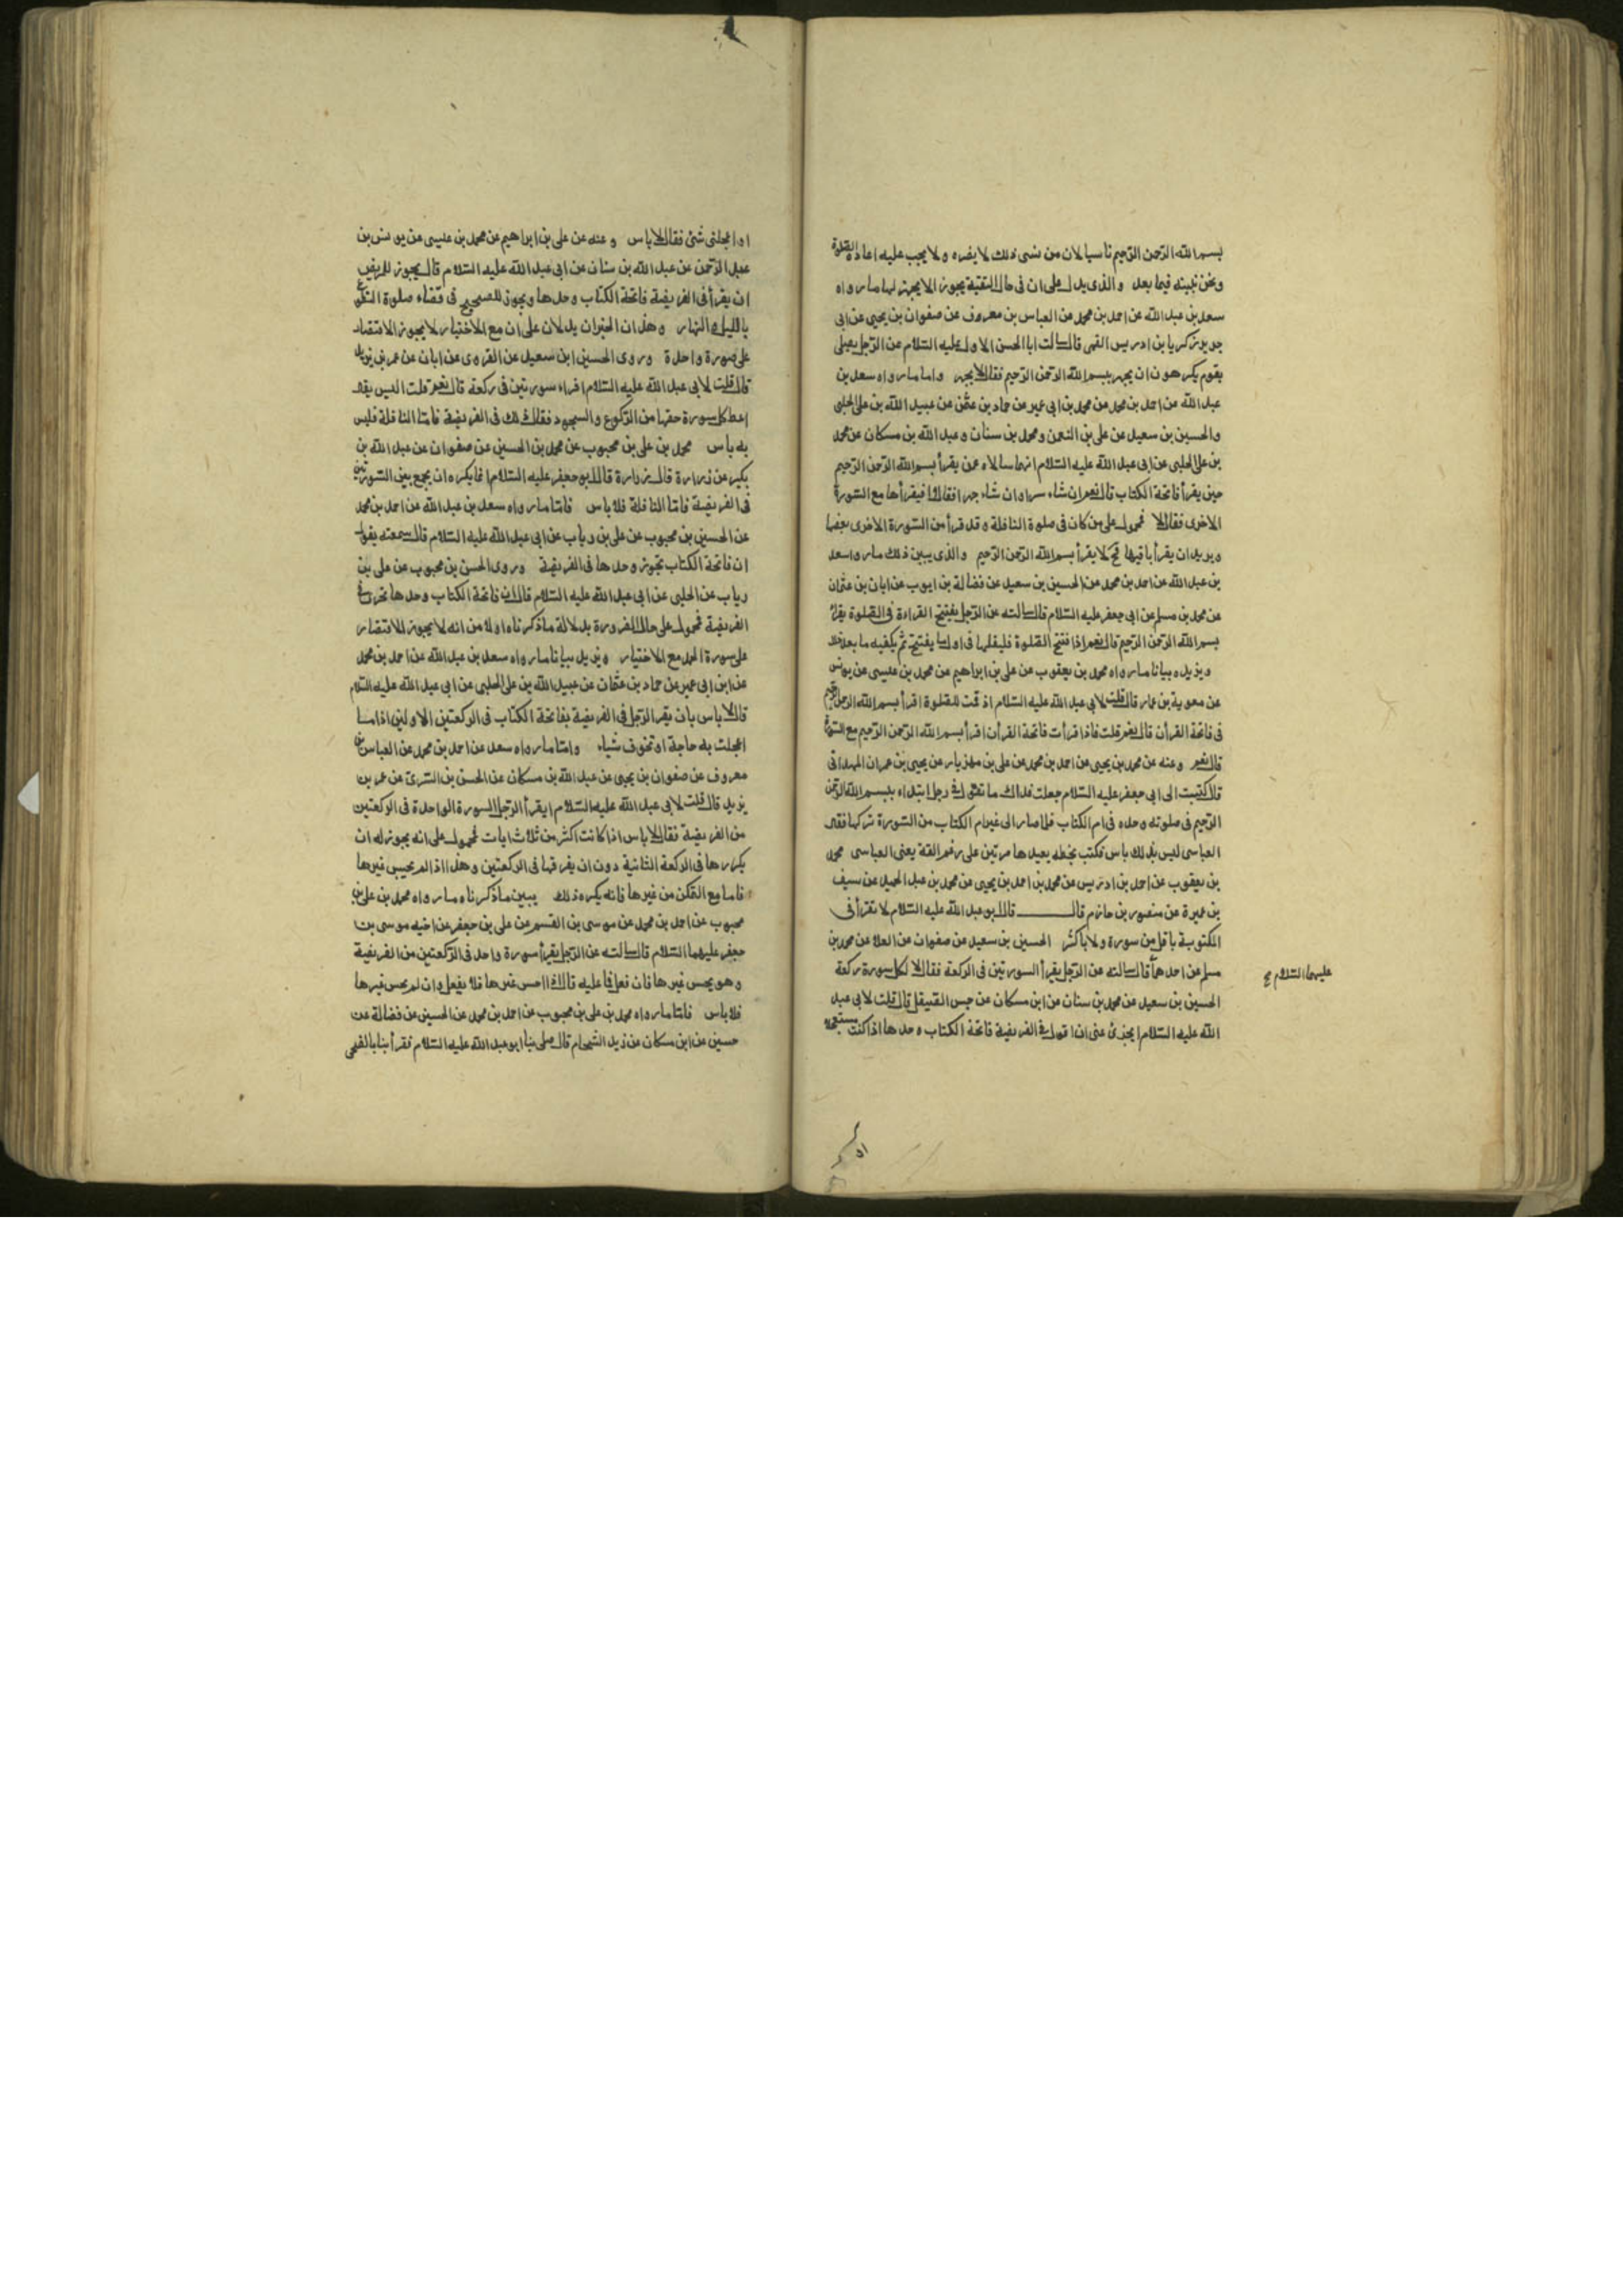 بسم الله الرحمن الرحيم ناسيا لان من نسى ذلك لا يضره ولا يجب عليه اعادة الصلوة
ونحن نبينه فيما بعد والذى يدل على ان فى حال التقية يجوز الا يجهر بها ما رواه
سعد بن عبد الله عن احمد بن محمد عن العباس بن معروف عن صفوان بن يحيى عن ابى
جرير زكريا بن ادريس القمى قال سالت ابا الحسن الاول عليه السلام عن الرجل يصلى
بقوم يكرهون ان يجهر ببسم الله الرحمن الرحيم فقال لا يجهر واما ما رواه سعد بن
عبد الله عن احمد بن محمد عن محمد بن ابى عمير عن حماد بن عثمن عن عبيد الله بن على الحلبى
والحسين بن سعيد عن على بن النعمن ومحمد بن سنان وعبد الله بن مسكان عن محمد
بن على الحلبى عن ابى عبد الله عليه السلام انهما سالاه عمن يقرأ بسم الله الرحمن الرحيم
حين يقرأ فاتحة الكتاب قال نعم ان شاء سرا وان شاء جهرا فقالا افيقرأها مع السورة
الاخرى فقال لا فمحمول على من كان فى صلوة النافلة وقد قرأ من السورة الاخرى بعضها
ويريد ان يقرأ باقيها فح لا يقرأ بسم الله الرحمن الرحيم والذى يبين ذلك ما رواه سعد
بن عبد الله عن احمد بن محمد عن الحسين بن سعيد عن فضالة بن ايوب عن ابان بن عثمان
عن محمد بن مسلم عن ابى جعفر عليه السلام قال سالته عن الرجل يفتتح القراءة فى الصلوة يقرأ
بسم الله الرحمن الرحيم قال نعم اذا فتتح الصلوة فليقلها فى اول ما يفتتح ثم يكفيه ما بعد ذلك
ويزيده بيانا ما رواه محمد بن يعقوب عن على بن ابراهيم عن محمد بن عيسى عن يونس
عن معوية بن عمار قال قلت لابى عبد الله عليه السلام اذ قمت للصلوة اقرأ بسم الله الرحمن الرحيم
فى فاتحة القرأن قال نعم قلت فاذا قرأت فاتحة القرأن اقرأ بسم الله الرحمن الرحيم مع السورة
قال نعم وعنه عن محمد بن يحيى عن احمد بن محمد عن على بن مهزيار عن يحيى بن عمران الهمدانى
قال كتبت الى ابى جعفر عليه السلام جعلت فداك ما تقول فى رجل ابتداء ببسم الله الرحمن
الرحيم فى صلوته وحده فى ام الكتاب فلما صار الى غير ام الكتاب من السورة تركها فقال
العباسى ليس بذلك باس فكتب بخطه يعيدها مرتين على رغم انفه يعنى العباسى محمد
بن يعقوب عن احمد بن ادريس عن محمد بن احمد بن يحيى عن محمد بن عبد الحميد عن سيف
بن عميرة عن منصور بن حازم قال قال ابو عبد الله عليه السلام لا تقرأ فى
المكتوبة باقل من سورة ولا باكثر الحسين بن سعيد عن صفوان عن العلا عن محمد بن
مسلم عن احدهما قال سالته عن الرجل يقرأ السورتين فى الركعة فقال لا لكل سورة ركعة
عليهما السلام صح
الحسين بن سعيد عن محمد بن سنان عن ابن مسكان عن حسن الصيقل قال قلت لابى عبد
الله عليه السلام ايجزئ عنى ان اقول فى الفريضة فاتحة الكتاب وحدها اذا كنت مستعجلا
او اعجلنى شئ فقال لا باس وعنه عن على بن ابراهيم عن محمد بن عيسى عن يونس بن
عبد الرحمن عن عبد الله بن سنان عن ابى عبد الله عليه السلام قال يجوز للمريض
ان يقرأ فى الفريضة فاتحة الكتاب وحدها ويجوز للصحيح فى قضاء صلوة التطوع
بالليل والنهار وهذان الخبران يدلان على ان مع الاختيار لا يجوز الاقتصار
على سورة واحدة وروى الحسين ابن سعيد عن القروى عن ابان عن عمر بن يزيد
قال قلت لابى عبد الله عليه السلام اقراء سورتين فى ركعة قال نعم قلت اليس يقال
اعط كل سورة حقها من الركوع والسجود فقال ذلك فى الفريضة فاما النافلة فليس
به باس محمد بن على بن محبوب عن محمد بن الحسين عن صفوان عن عبد الله بن
بكير عن زرارة قال زرارة قال ابو جعفر عليه السلام انما يكره ان يجمع بين السورتين
فى الفريضة فاما النافلة فلا باس فاما ما رواه سعد بن عبد الله عن احمد بن محمد
عن الحسين بن محبوب عن على بن رياب عن ابى عبد الله عليه السلام قال سمعته يقول
ان فاتحة الكتاب تجوز وحدها فى الفريضة وروى الحسن بن محبوب عن على بن
رياب عن الحلبى عن ابى عبد الله عليه السلام قال ان فاتحة الكتاب وحدها تجزى فى
الفريضة فمحمول على حال الضرورة بدلالة ما ذكرناه اولا من انه لا يجوز الاقتصار
على سورة الحمد مع الاختيار ويزيد بيانا ما رواه سعد بن عبد الله عن احمد بن محمد
عن ابن ابى عمير عن حماد بن عثمان عن عبيد الله بن على الحلبى عن ابى عبد الله عليه السلام
قال لا باس بان يقرأ الرجل فى الفريضة بفاتحة الكتاب فى الركعتين الاولتين اذا ما
اعجلت به حاجة او تخوف شياء واما ما رواه سعد عن احمد بن محمد عن العباس بن
معروف عن صفوان بن يحيى عن عبد الله بن مسكان عن الحسن بن السرى عن عمر بن
يزيد قال قلت لابى عبد الله عليه السلام ايقرأ الرجل السورة الواحدة فى الركعتين
من الفريضة فقال لا باس اذا كانت اكثر من ثلاث ايات فمحمول على انه يجوز له ان
يكررها فى الركعة الثانية دون ان يفرقها فى الركعتين وهذا اذا لم يحسن غيرها
فاما مع التمكن من غيرها فانه يكره ذلك يبين ما ذكرناه ما رواه محمد بن على بن
محبوب عن احمد بن محمد عن موسى بن القسم عن على بن جعفر عن اخيه موسى بن
جعفر عليهما السلام قال سالته عن الرجل يقرأ سورة واحد فى الركعتين من الفريضة
وهو يحسن غيرها فان فعل فما عليه قال اذا احسن غيرها فلا يفعل وان لم يحسن غيرها
فلا باس فاما ما رواه محمد بن على بن محبوب عن احمد بن محمد عن الحسين عن فضالة عن
حسين عن ابن مسكان عن زيد الشحام قال صلى بنا ابو عبد الله عليه السلام فقرأ بنا بالضحى